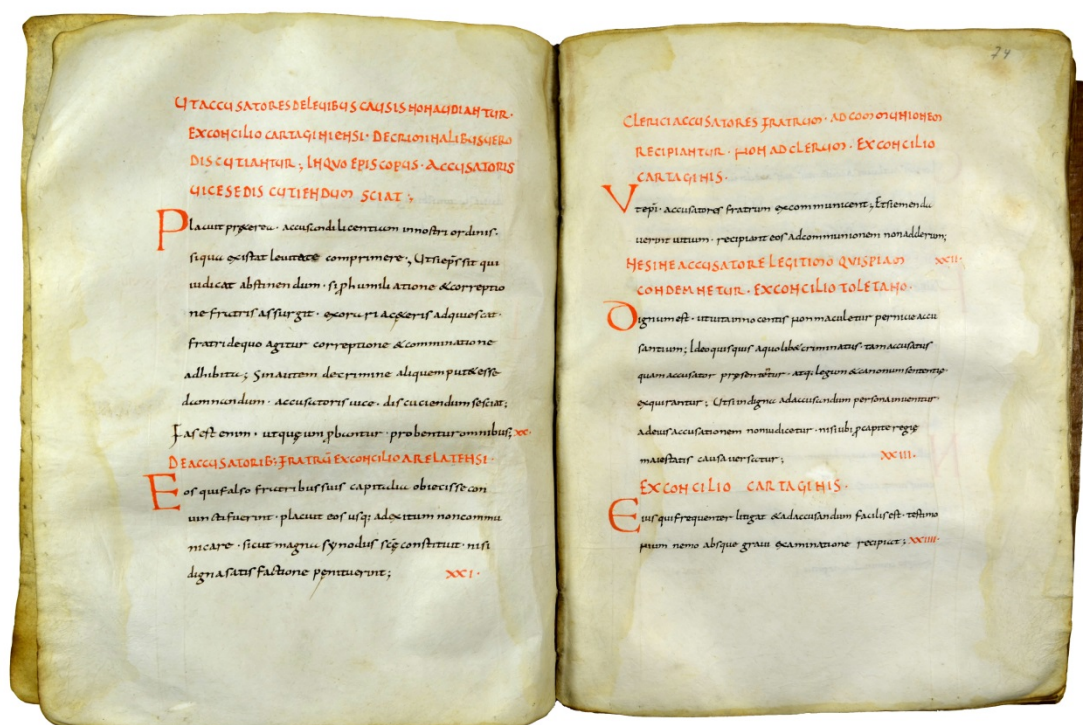 UT ACCUSATORES DE LEUIBUS CAUSIS NON AUDIANTUR·
EX CONCILIO CARTAGINIENSI· DE CRIMINALIBUS UERO
DISCUTIANTUR; IN QUO EPISCOPUS· ACCUSATORIS
UICE SE DISCUTIENDUM SCIAT;
Placuit pręterea· accusandi licentium in nostri ordinis·
siqua existat leuitate comprimere; Ut si eps̄ sit qui
iudicat abstinendum· si p humiliatione & correptio
ne fratris assurgit· exorari ac ceteris adquiescat·
fratri de quo agitur correptione & comminatione
adhibita; Sin autem de crimine aliquem put& esse
damnandum· accusatoris uice· discuciendum se sciat;
Fas est enim· ut quę um pbantur· probentur omnibus; XX·
DE ACCUSATORIB; FRATRŪ EX CONCILIO ARELATENSI·
Eos qui falso fratribus suis capitalia obiecisse con
uincti fuerint· placuit eos usq; ad exitum non commu
nicare· sicut magna synodus scę constituit· nisi
digna satisfactione penituerint; XXI·
74
CLERICI ACCUSATORES FRATRUM· AD COMMUNIONEM
RECIPIANTUR· NON AD CLERUM· EX CONCILIO
CARTAGINIS·
Ut epī· accusatores fratrum excommunicent; Et si emenda
uerint uitium· recipiant eos ad communionem non ad clerum;
NE SINE ACCUSATORE LEGITIMO QUISPIAM XXII·
CONDEMNETUR· EX CONCILIO TOLETANO·
Dignum est· ut uita innocentis non maculetur pernicie accu
santium; Ideo quisquis a quolib& criminatus· tam accusatus
quam accusator pręsentetur· atq; legum & canonum sententię
exquirantur; Ut si indigna ad accusandum persona inuenitur·
ad eius accusationem non iudicetur· nisi ubi p capite regię
maiestatis causa uersatur; XXIII·
EX CONCILIO CARTAGINIS·
Eius qui frequenter litigat & ad accusandum facilis est· testimo
nium nemo absque graui examinatione recipiat; XXIIII·